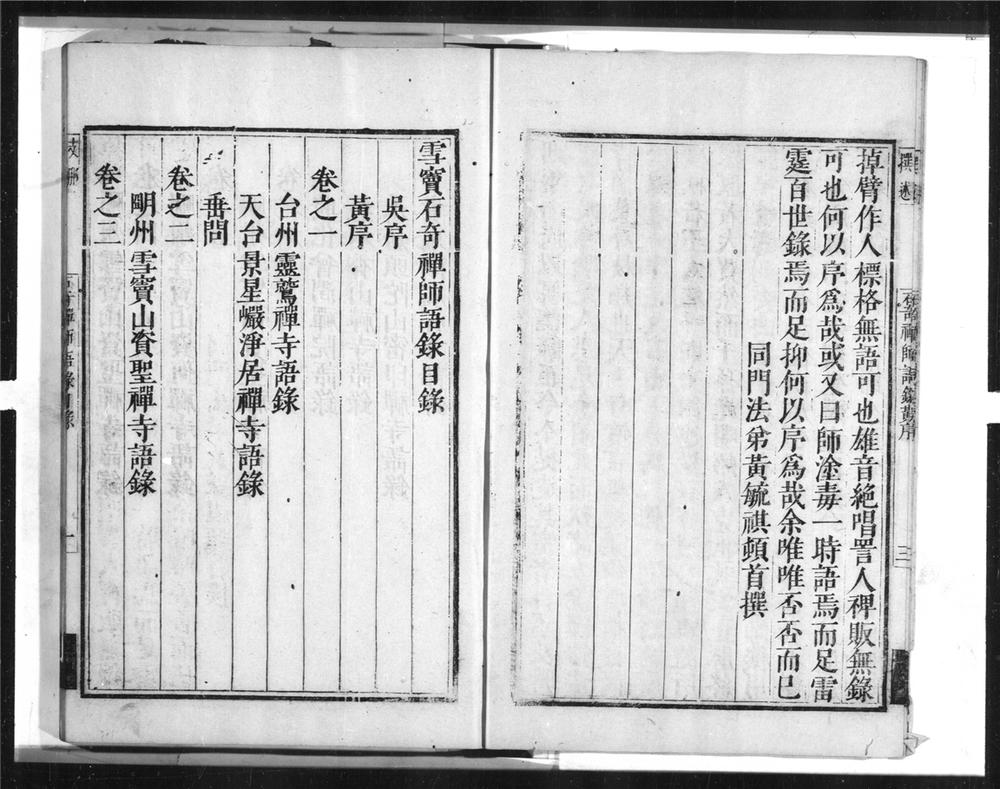 掉臂作人標格無語可也雄音絶唱詈人稗販無錄
可也何以序爲哉或又曰師塗毒一時語焉而足雷
霆百世錄焉而足抑何以序爲哉余唯唯否否而已
同門法弟黃毓祺頓首撰
撰述
石奇禪師語錄黃序
三
雪竇石奇禪師語錄目錄
吳序
黃序
卷之一
台州靈鷲禪寺語錄
天台景星巖淨居禪寺語錄
垂問
卷之二
明州雪竇山資聖禪寺語錄
卷之三
一